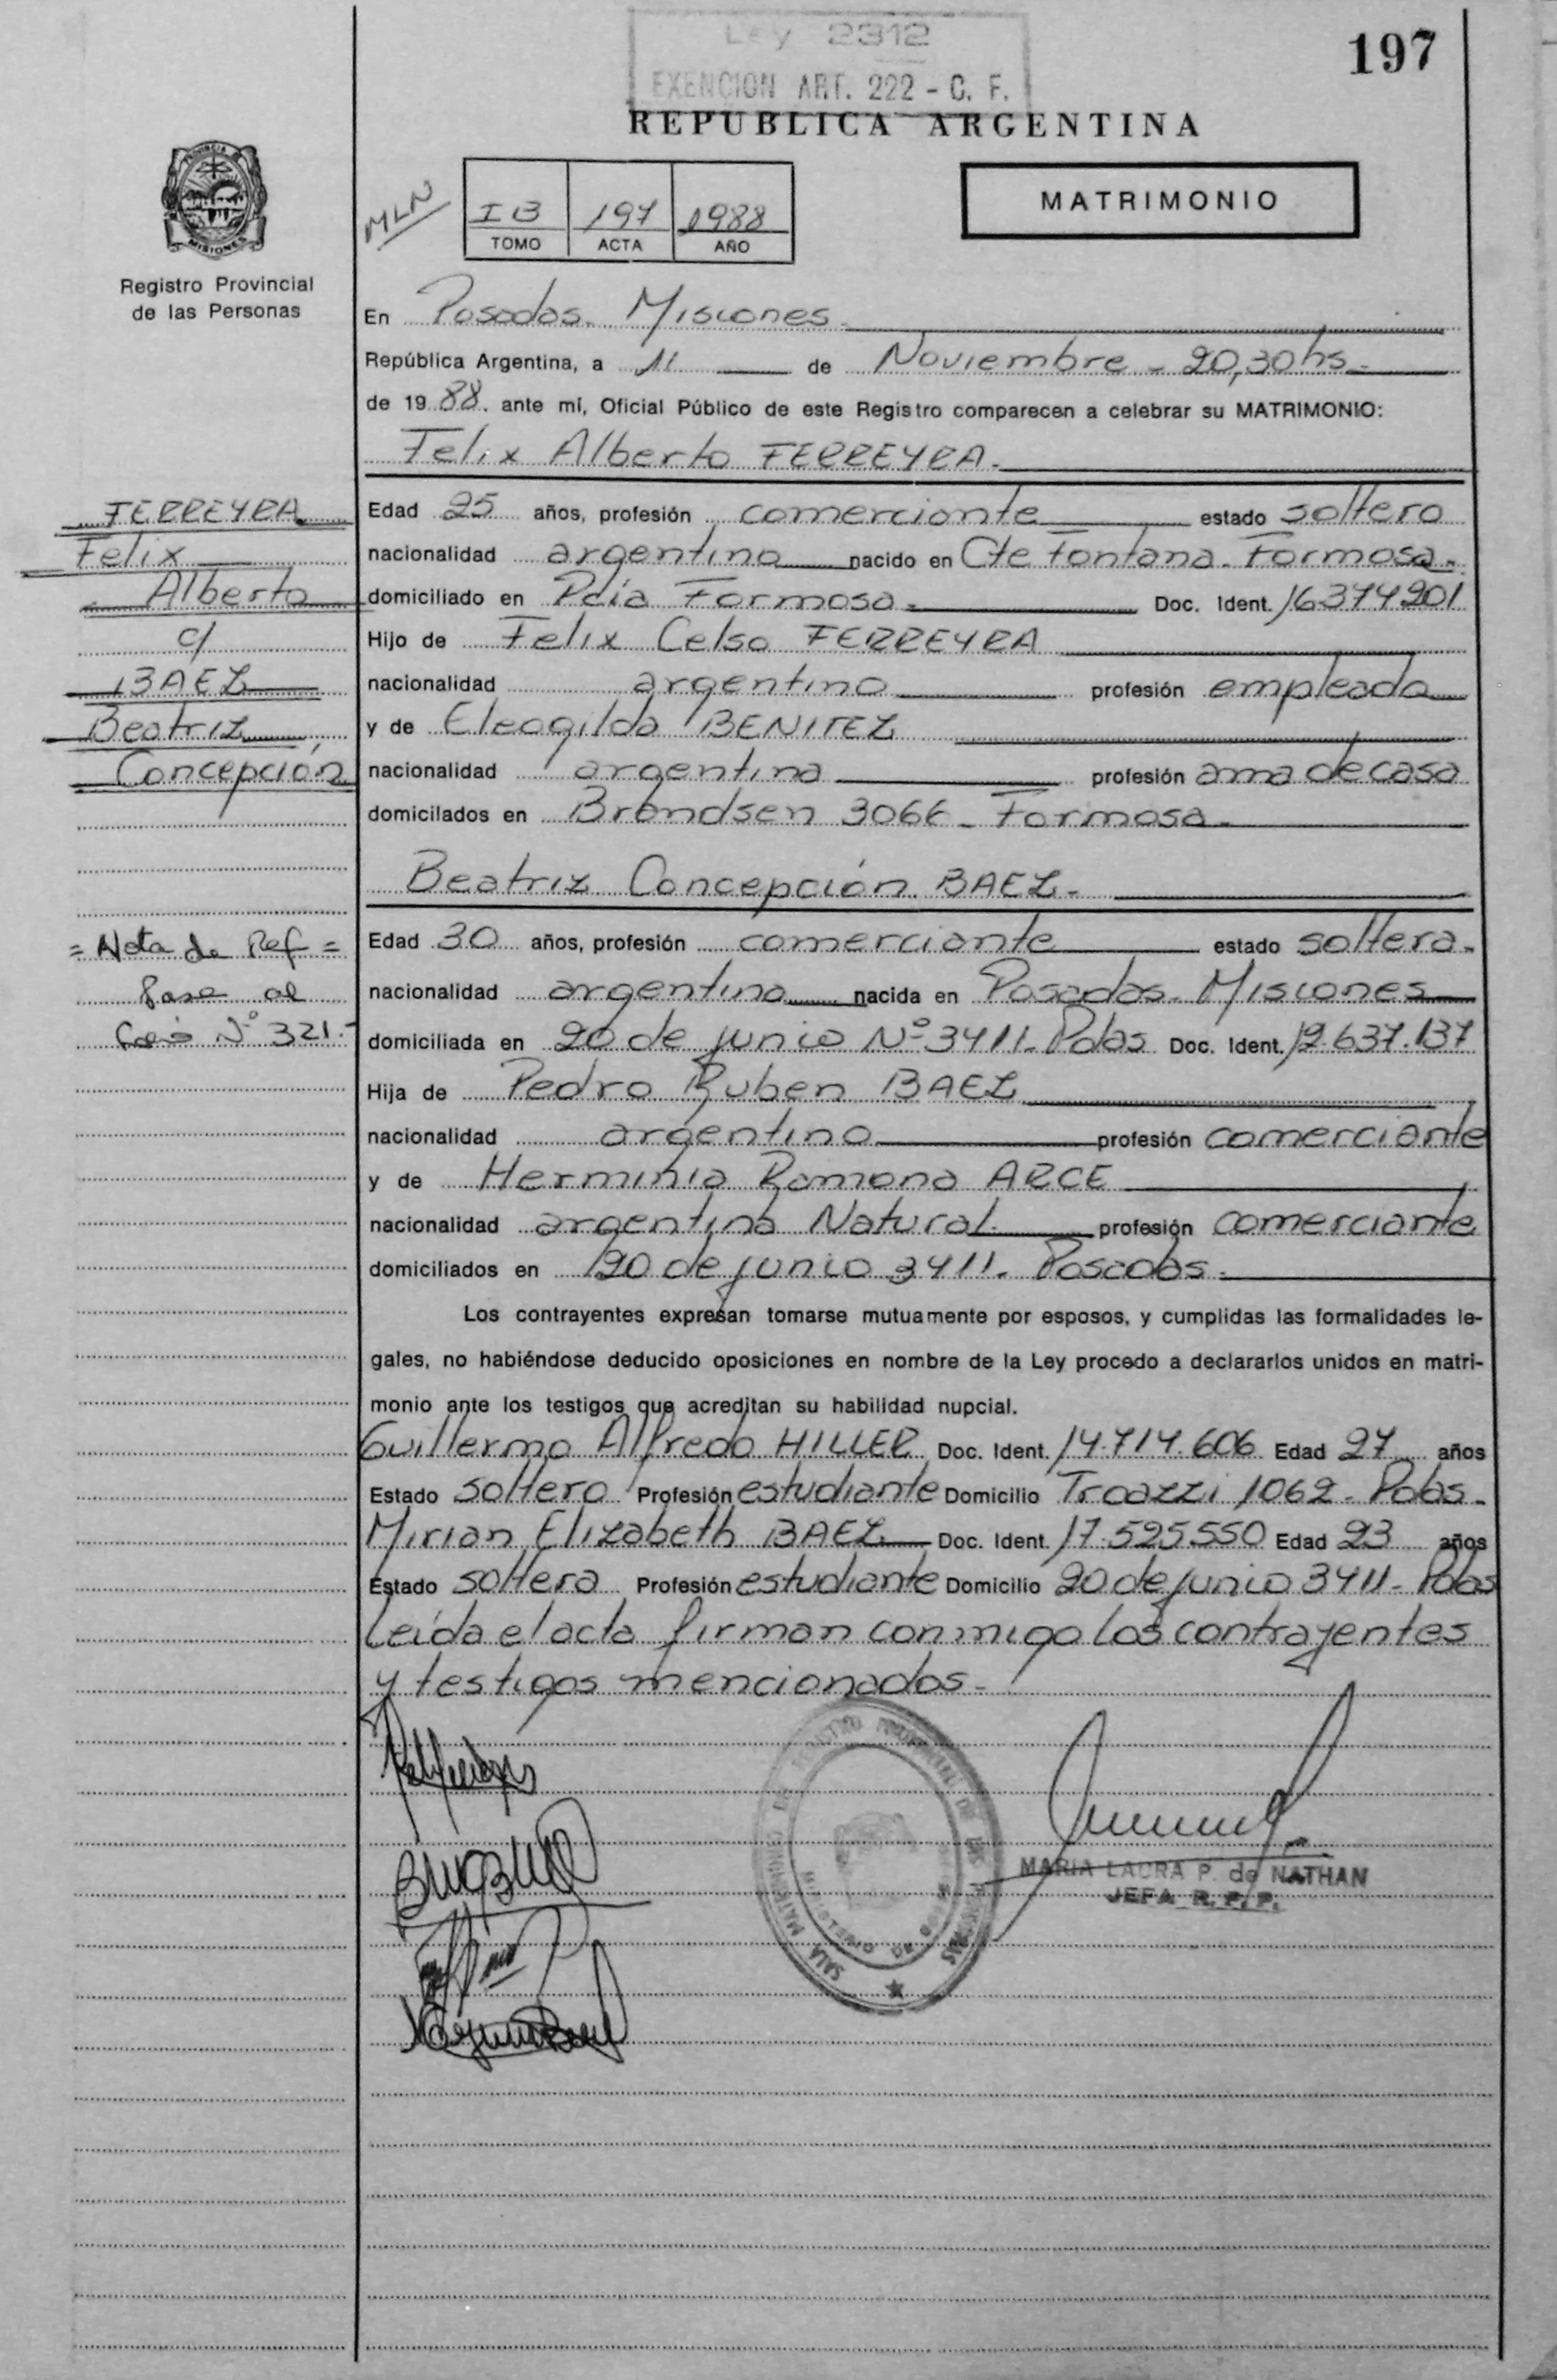 Ley 2312
EXENCION ART. 222 - C. F.
197
REPUBLICA ARGENTINA
PROVINCIA DE MISIONES
Registro Provincial
de las Personas
MLN
I B 197 1988
TOMO ACTA AÑO
MATRIMONIO
En Posadas. Misiones
República Argentina, a 11 de Noviembre - 20,30 hs.
de 19 88. ante mí, Oficial Público de este Registro comparecen a celebrar su MATRIMONIO:
Felix Alberto FERREYRA.
FERREYRA
Felix
Alberto
c/
BAEZ
Beatriz
Concepción
Edad 25 años, profesión comerciante estado soltero
nacionalidad argentino nacido en Cte Fontana. Formosa.
domiciliado en Pcia Formosa. Doc. Ident. 16374201
Hijo de Felix Celso FERREYRA
nacionalidad argentino profesión empleado
y de Eleogilda BENITEZ
nacionalidad argentina profesión ama de casa
domicilados en Brandsen 3066 - Formosa.
Beatriz Concepción BAEZ.
= Nota de Ref =
Pase al
Nº 321.-
Edad 30 años, profesión comerciante estado soltera.
nacionalidad argentina nacida en Posadas. Misiones
domiciliada en 20 de junio Nº 3411. Pdas Doc. Ident. 12.637.137
Hija de Pedro Ruben BAEZ
nacionalidad argentino profesión comerciante
y de Herminia Ramona ARCE
nacionalidad argentina Natural profesión comerciante
domiciliados en 20 de junio 3411. Posadas.
Los contrayentes expresan tomarse mutuamente por esposos, y cumplidas las formalidades le-
gales, no habiéndose deducido oposiciones en nombre de la Ley procedo a declararlos unidos en matri-
monio ante los testigos que acreditan su habilidad nupcial.
Guillermo Alfredo HILLER Doc. Ident. 14.714.606 Edad 27 años
Estado soltero Profesión estudiante Domicilio 1062 - Pdas.
Mirian Elizabeth BAEZ Doc. Ident. 17.525.550 Edad 23 años
Estado soltera Profesión estudiante Domicilio 20 de junio 3411 - Pdas
Leída el acta firman conmigo los contrayentes
y testigos mencionados.
MARIA LAURA P. de NATHAN
JEFA R. P. P.